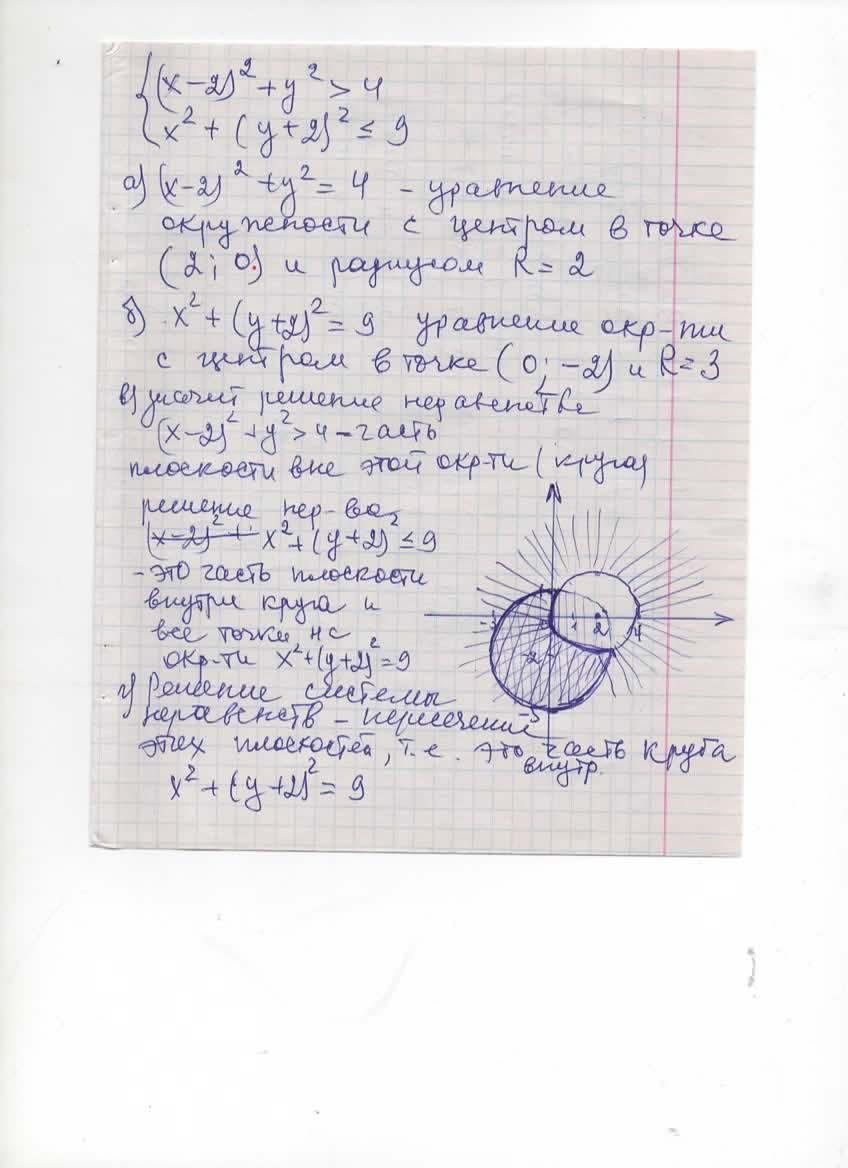 (x-2)² + y² > 4
x² + (y+2)² ≤ 9
а) (x-2)² + y² = 4 - уравнение
окружности с центром в точке
(2; 0) и радиусом R = 2
б) x² + (y+2)² = 9 уравнение окр-ти
с центром в точке (0; -2) и R = 3
в) значит решение неравенства
(x-2)² + y² > 4 - часть
плоскости вне этой окр-ти (круга)
решение нер-ва
(x-2)² + x² + (y+2)² ≤ 9
- это часть плоскости
внутри круга и
все точки на
окр-ти x² + (y+2)² = 9
г) Решение системы
неравенств - пересечение
этих плоскостей, т.е. это часть круга
внутр.
x² + (y+2)² = 9
-3 1 2 4
-2
-5